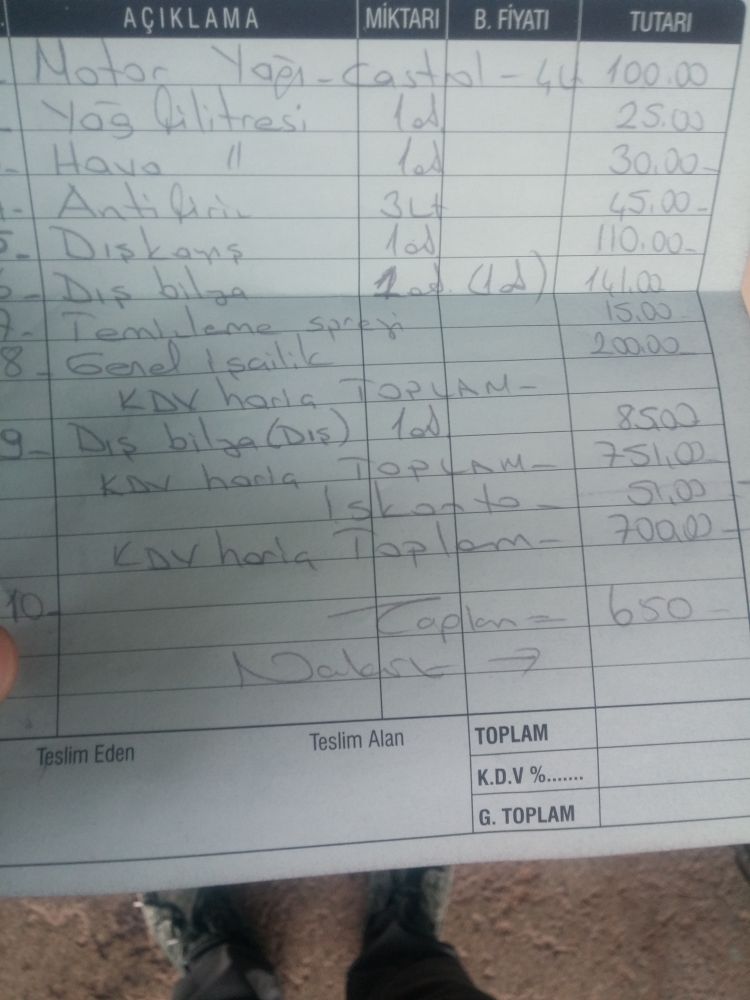 AÇIKLAMA MİKTARI B. FİYATI TUTARI
Motor Yağı - Castrol - 4Lt 100.00
Yağ filitresi 1ad 25.00
Hava " 1ad 30.00-
Antifiriz 3Lt 45.00-
5- Dış kayış 1ad 110.00-
6- Dış bilza 1ad. (1ad) 141.00
7- Temizleme spreyi 15.00
8- Genel işçilik 200.00
KDV hariç TOPLAM-
9- Dış bilza (Dış) 1ad 85.00
KDV hariç TOPLAM- 751.00
İskonto- 51.00
KDV hariç Toplam- 700.00-
10-
Toplam = 650-
Nakit →
Teslim Eden Teslim Alan
TOPLAM
K.D.V %.......
G. TOPLAM